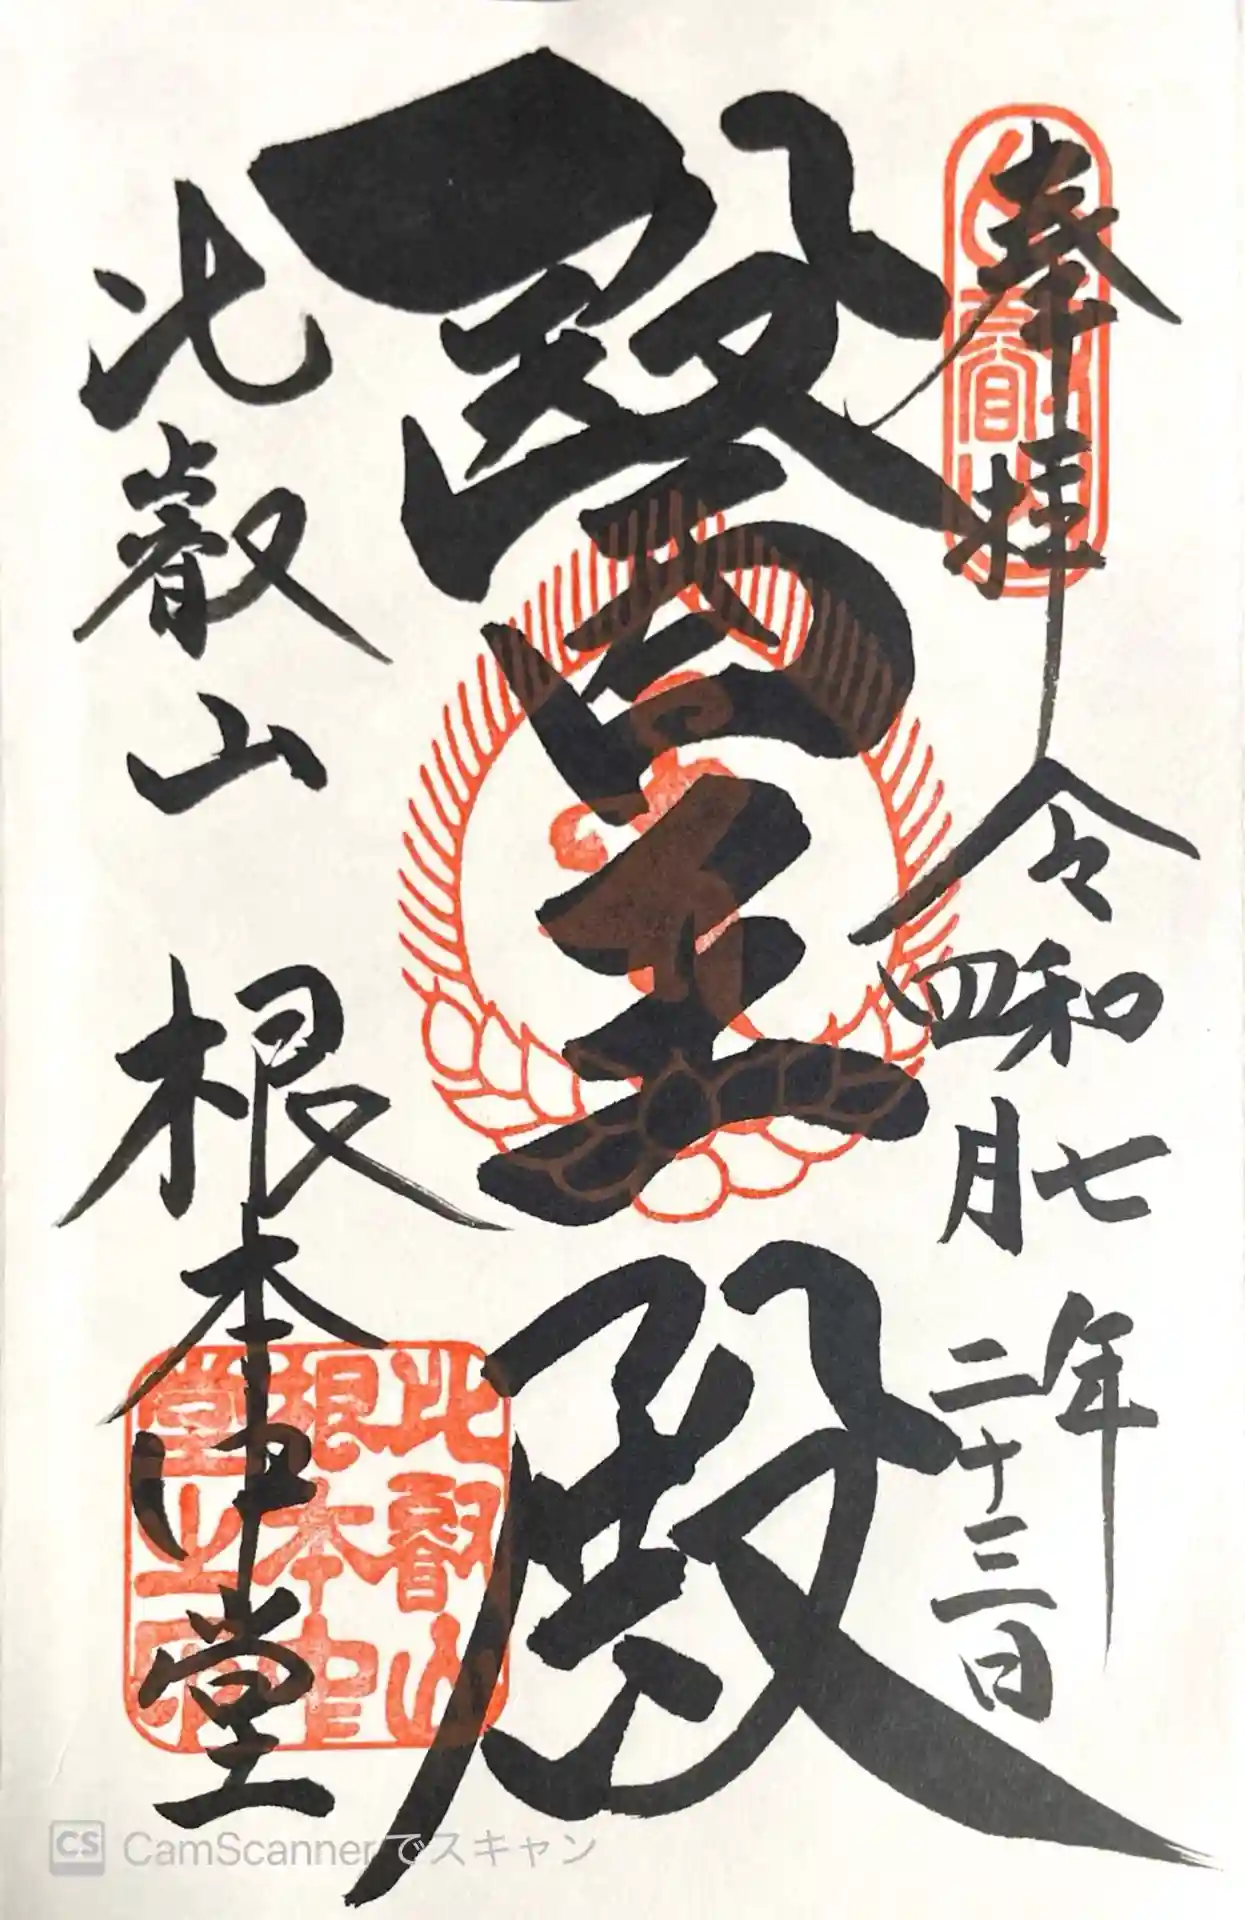 奉拝
令和七年
四月二十三日
醫王殿
比叡山 根本中堂
比叡山
根本中
堂之印
CamScannerでスキャン